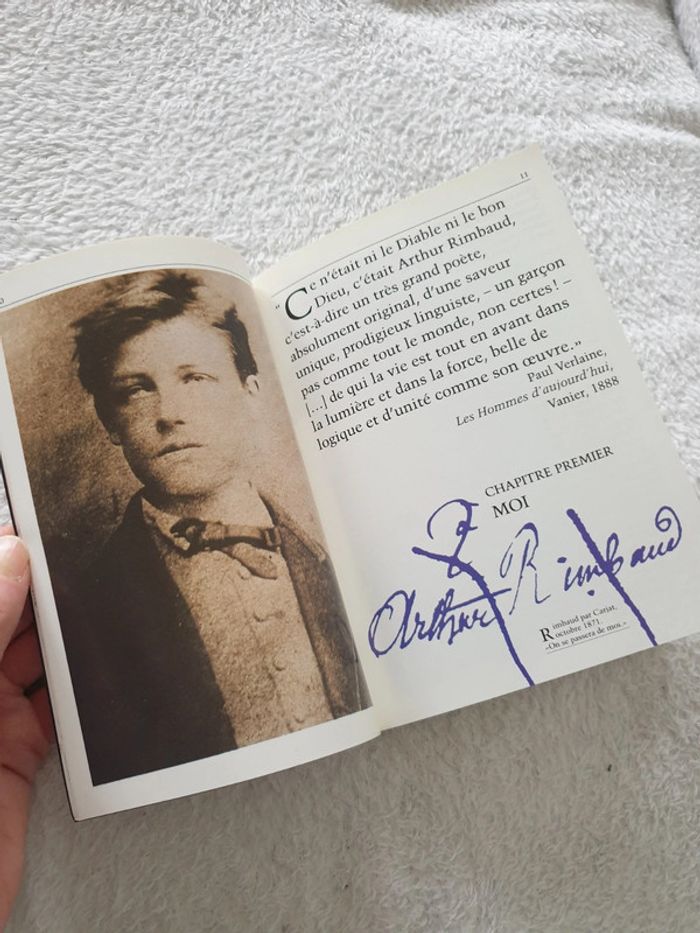 11
“Ce n'était ni le Diable ni le bon
Dieu, c'était Arthur Rimbaud,
c'est-à-dire un très grand poète,
absolument original, d'une saveur
unique, prodigieux linguiste, – un garçon
pas comme tout le monde, non certes ! –
[...] de qui la vie est tout en avant dans
la lumière et dans la force, belle de
logique et d'unité comme son œuvre.»
Paul Verlaine,
Les Hommes d'aujourd'hui,
Vanier, 1888
CHAPITRE PREMIER
MOI
Arthur Rimbaud
Rimbaud par Carjat,
octobre 1871.
«On se passera de moi.»